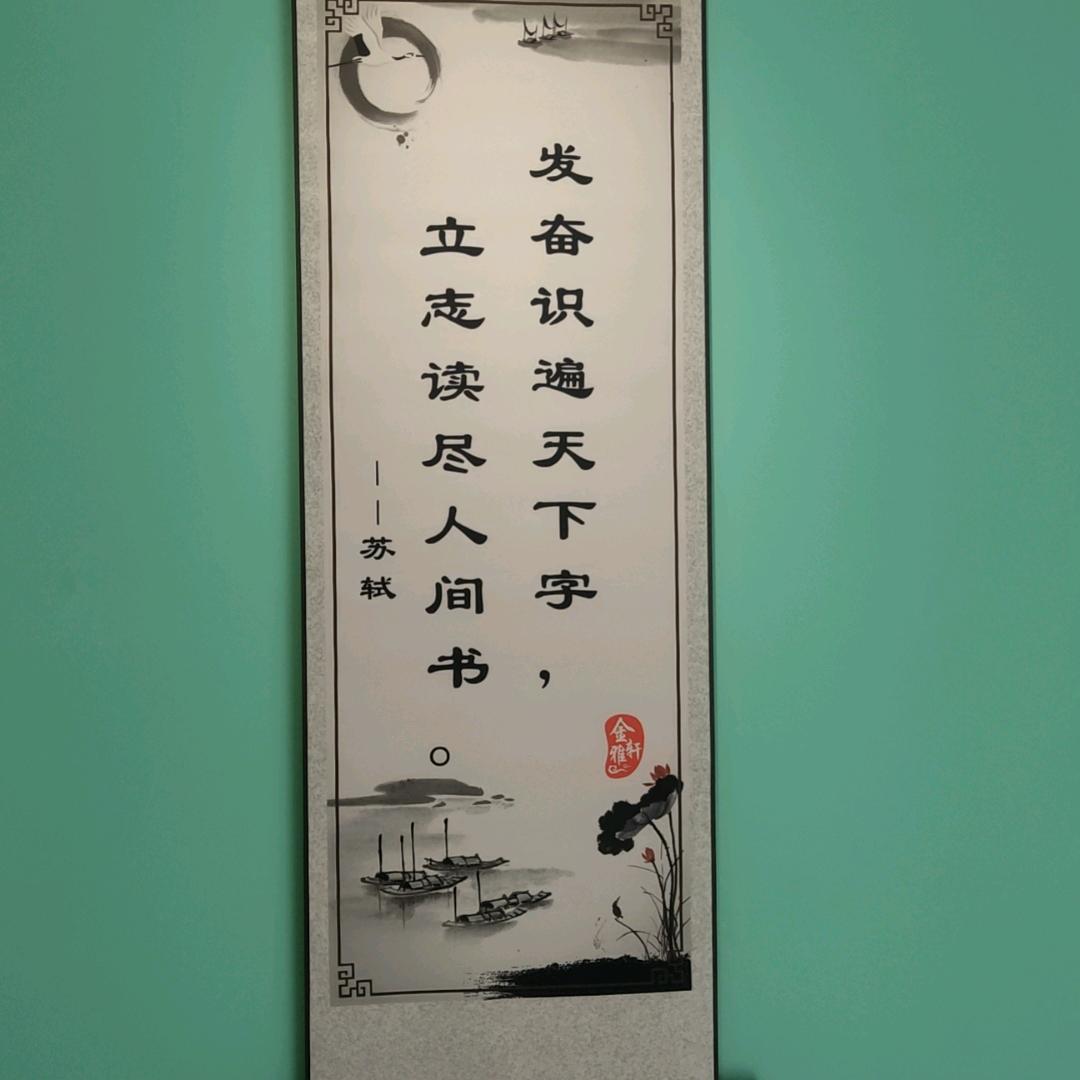 发奋识遍天下字，
立志读尽人间书。
——苏轼
金雅轩